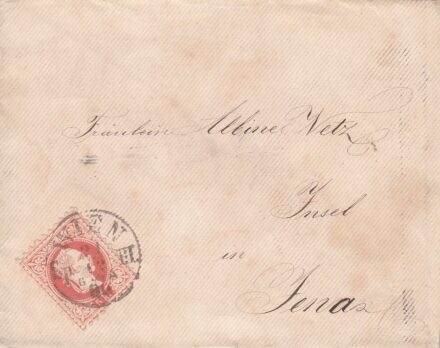 Fräulein Albine Netz
Insel
in
Jena
WIEN